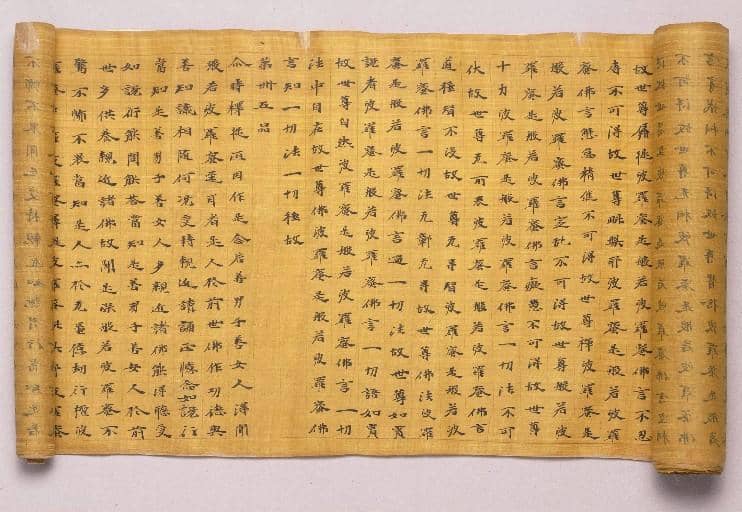 不可得故世尊无相波羅蜜是般若波羅蜜佛
故世尊羼提波羅蜜是般若波羅蜜佛言不忍
辱不可得故世尊毗梨耶波羅蜜是般若波羅
蜜佛言懈怠精進不可得故世尊禪波羅蜜是
般若波羅蜜佛言定乱不可得故世尊般若波
羅蜜是般若波羅蜜佛言癡慧不可得故世尊
十力波羅蜜是般若波羅蜜佛言一切法不可
伏故世尊无所畏波羅蜜是般若波羅蜜佛言
道種智不沒故世尊无导智波羅蜜是般若波
羅蜜佛言一切法无鄣无导故世尊佛法波羅
蜜是般若波羅蜜佛言過一切法故世尊如實
說者波羅蜜是般若波羅蜜佛言一切語如實
故世尊自然波羅蜜是般若波羅蜜佛言一切
法中自在故世尊佛波羅蜜是般若波羅蜜佛
言知一切法一切種故
第卌五品
尒時釋提桓因作是念若善男子善女人得聞
般若波羅蜜逕耳者是人於前世佛作功德與
善知識相隨何況受持親近讀誦正憶念如說行
當知是善男子善女人多親近諸佛能得聽受
如說行能問能答當知是善男子善女人於前
世多供養親近諸佛故聞是深般若波羅蜜不
驚不怖不畏當知是人亦於无量億劫行檀波